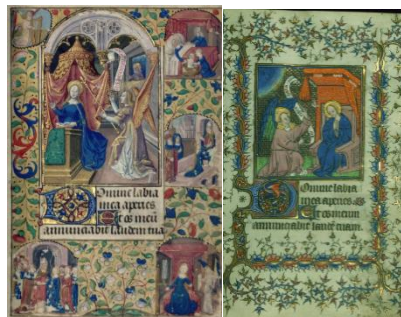 Domine labia
mea aperies
Et os meū
annunciabit laudem tua
Domine labia
mea aperies
Et os meum
annunciabit laudē tuam